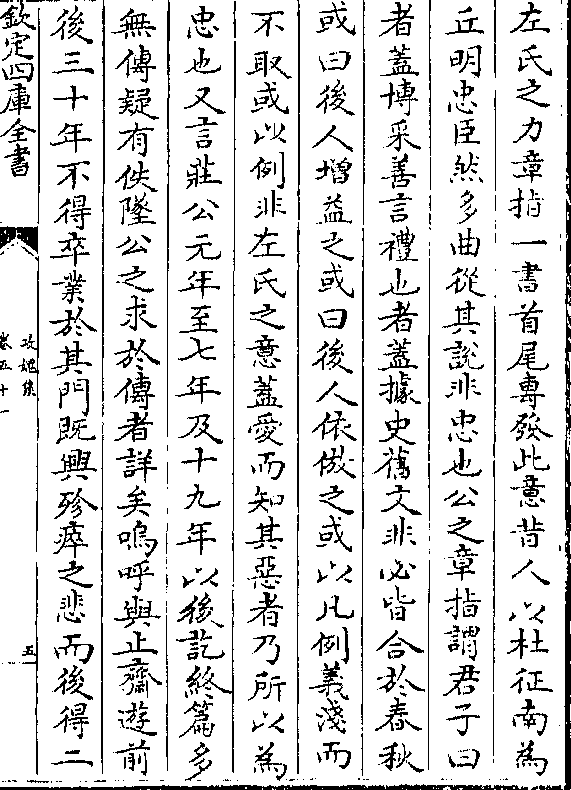 左氏之力章指一書首尾專發此意昔人以杜征南為
丘明忠臣然多曲從其說非忠也公之章指謂君子曰
者蓋博采善言禮也者蓋據史舊文非必皆合於春秋
或曰後人增益之或曰後人依倣之或以凡例義淺而
不取或以例非左氏之意蓋愛而知其惡者乃所以為
忠也又言莊公元年至七年及十九年以後訖終篇多
無傳疑有佚墜公之求於傳者詳矣嗚呼與止齋遊前
後三十年不得卒業於其門既興殄瘁之悲而後得二
欽定四庫全書
攻媿集
卷五十一
五